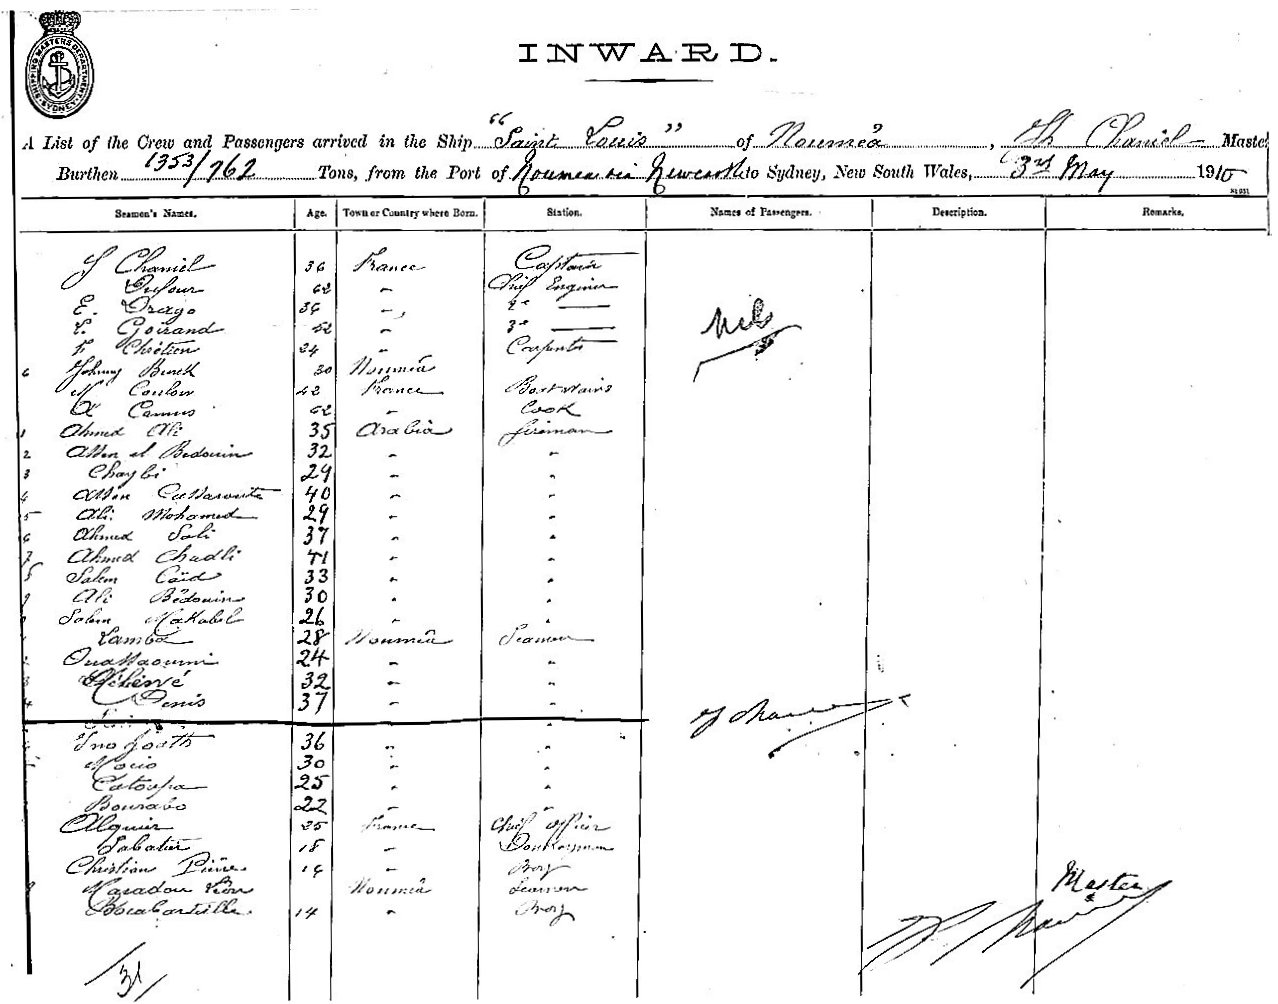 SHIPPING MASTERS DEPARTMENT SYDNEY
INWARD.
A List of the Crew and Passengers arrived in the Ship "Saint Louis" of Nouméa, Th Chaniel Master
Burthen 1353/762 Tons, from the Port of Noumea via Newcastle to Sydney, New South Wales, 3rd May 1910
Seamen's Names. Age. Town or Country where Born. Station. Names of Passengers. Description. Remarks.
Chaniel 36 France Captain
Dufour 42 " Chief Engineer
E. Drago 36 " 2e —
Goirand 52 " 3e — Nil
Chrétien 24 " Carpenter
6 Johnny Buck 30 Nouméa
Coulon 42 France Boatswains
Camus 42 " Cook
1 Ahmed Ali 35 Arabia fireman
2 Assen el Bedouin 32 " "
3 Chaybi 29 " "
4 Assen 40 " "
5 Ali Mohamed 29 " "
6 Ahmed Sali 37 " "
7 Ahmed Chadli 41 " "
8 Salem Caïd 33 " "
9 Ali Bédouin 30 " "
Salem Makabel 26 " "
Lamba 28 Nouméa Seamen
24 " "
3 32 " "
4 Denis 37 " "
36 " "
30 " "
Catoupa 25 " "
Bourabo 22 " "
Alquier 25 France Chief officer
Sabatier 18 " Donkeyman
Christian Pierre 14 " Boy
Léon Nouméa Seamen
14 " Boy
Master
31